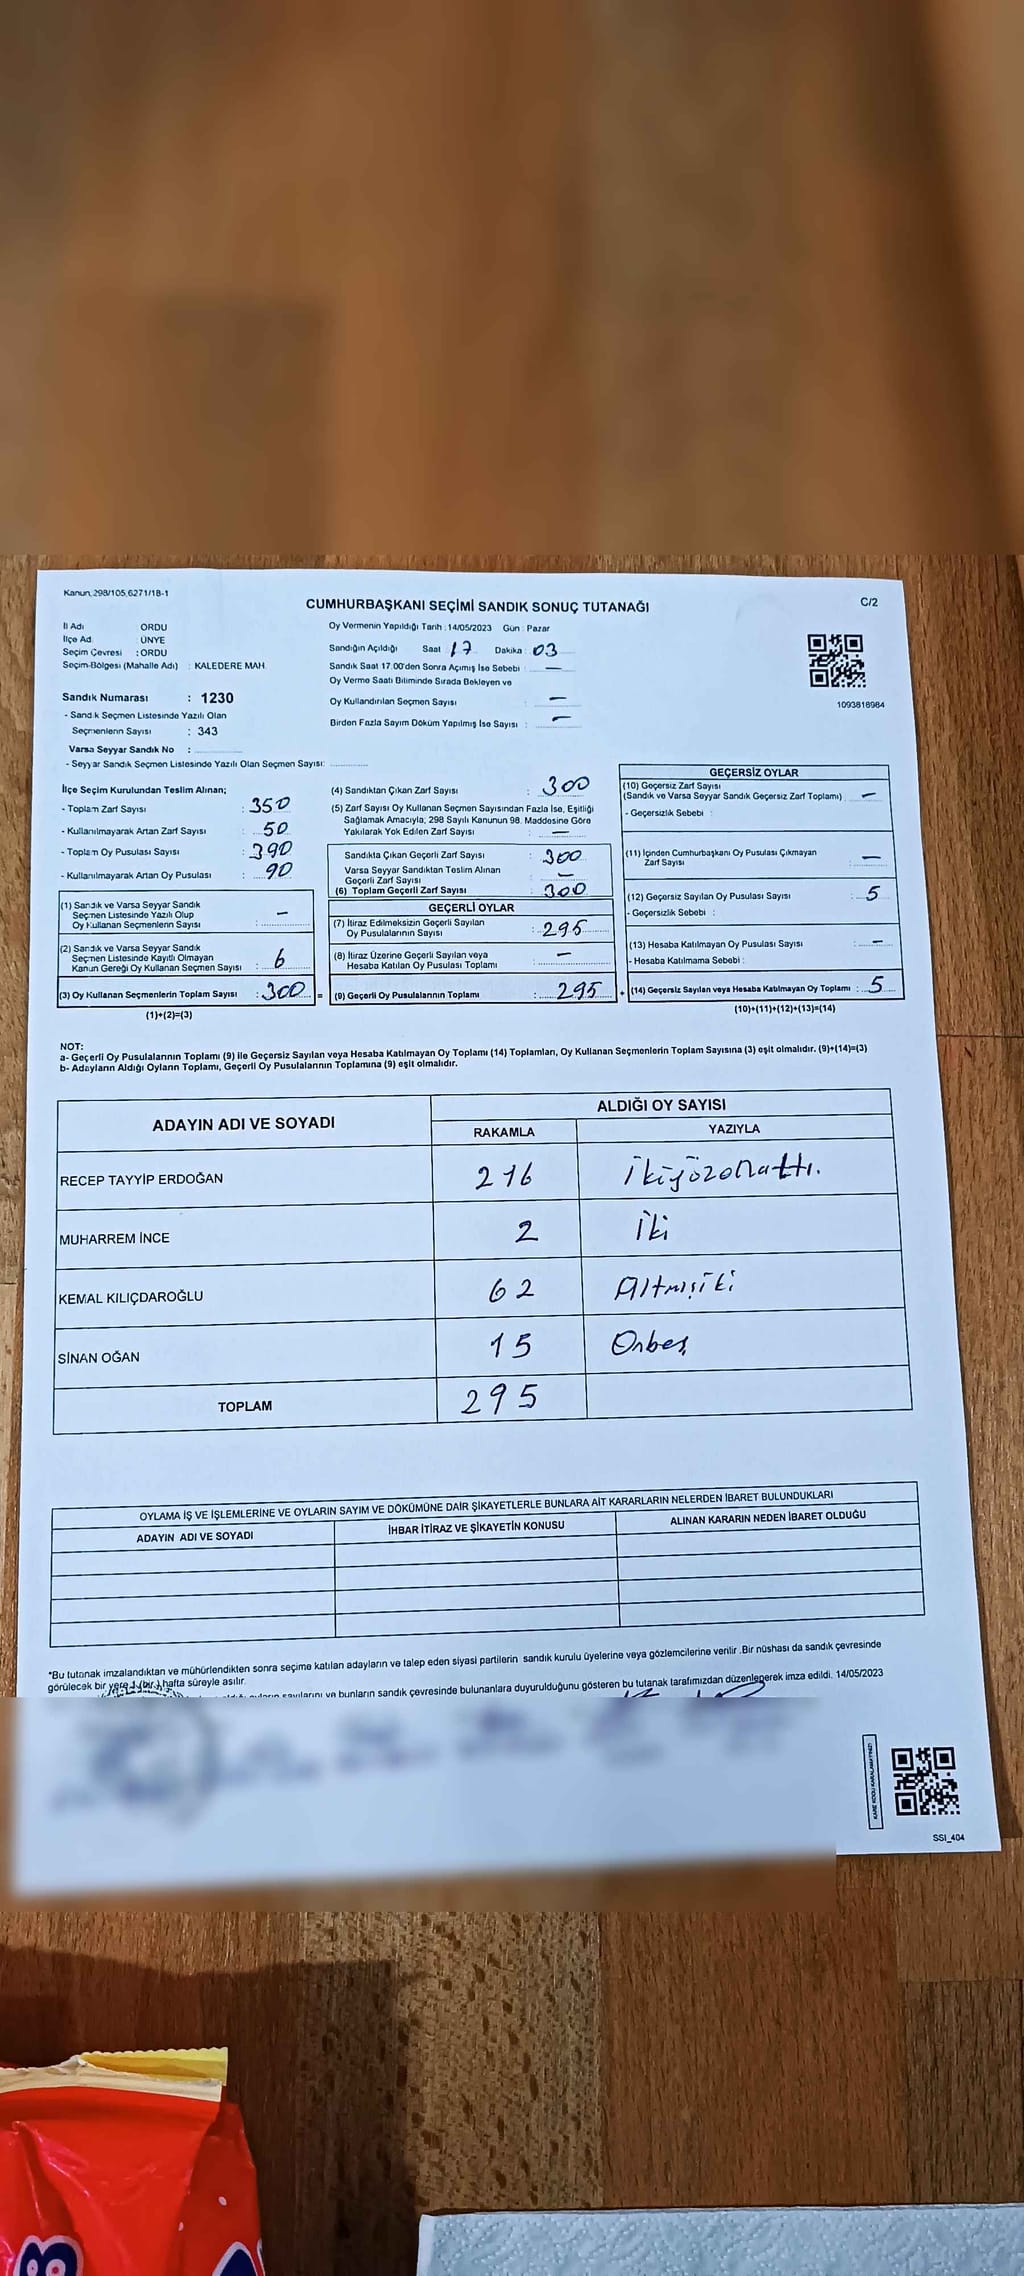 Kanun, 298/105,6271/18-1
CUMHURBAŞKANI SEÇİMİ SANDIK SONUÇ TUTANAĞI
C/2
İl Adı : ORDU
İlçe Ad : ÜNYE
Seçim Çevresi : ORDU
Seçim Bölgesi (Mahalle Adı) : KALEDERE MAH
Oy Vermenin Yapıldığı Tarih : 14/05/2023 Gün : Pazar
Sandığın Açıldığı Saat 17 Dakika : 03
Sandık Saat 17.00'den Sonra Açımış İse Sebebi : —
Oy Verme Saati Biliminde Sırada Bekleyen ve
Oy Kullandırılan Seçmen Sayısı : —
Birden Fazla Sayım Döküm Yapılmış İse Sayısı : —
1093818984
Sandık Numarası : 1230
- Sandık Seçmen Listesinde Yazılı Olan
Seçmenlerin Sayısı : 343
Varsa Seyyar Sandık No :
- Seyyar Sandık Seçmen Listesinde Yazılı Olan Seçmen Sayısı:
İlçe Seçim Kurulundan Teslim Alınan;
- Toplam Zarf Sayısı : 350
- Kullanılmayarak Artan Zarf Sayısı : 50
- Toplam Oy Pusulası Sayısı : 390
- Kullanılmayarak Artan Oy Pusulası : 90
(1) Sandık ve Varsa Seyyar Sandık
Seçmen Listesinde Yazılı Olup
Oy Kullanan Seçmenlerin Sayısı : —
(2) Sandık ve Varsa Seyyar Sandık
Seçmen Listesinde Kayıtlı Olmayan
Kanun Gereği Oy Kullanan Seçmen Sayısı : 6
(3) Oy Kullanan Seçmenlerin Toplam Sayısı : 300
(1)+(2)=(3)
(4) Sandıktan Çıkan Zarf Sayısı : 300
(5) Zarf Sayısı Oy Kullanan Seçmen Sayısından Fazla İse, Eşitliği
Sağlamak Amacıyla; 298 Sayılı Kanunun 98. Maddesine Göre
Yakılarak Yok Edilen Zarf Sayısı : —
Sandıkta Çıkan Geçerli Zarf Sayısı : 300
Varsa Seyyar Sandıktan Teslim Alınan
Geçerli Zarf Sayısı : —
(6) Toplam Geçerli Zarf Sayısı : 300
GEÇERLİ OYLAR
(7) İtiraz Edilmeksizin Geçerli Sayılan
Oy Pusulalarının Sayısı : 295
(8) İtiraz Üzerine Geçerli Sayılan veya
Hesaba Katılan Oy Pusulası Toplamı : —
= (9) Geçerli Oy Pusulalarının Toplamı : 295
GEÇERSİZ OYLAR
(10) Geçersiz Zarf Sayısı
(Sandık ve Varsa Seyyar Sandık Geçersiz Zarf Toplamı) : —
- Geçersizlik Sebebi :
(11) İçinden Cumhurbaşkanı Oy Pusulası Çıkmayan
Zarf Sayısı : —
(12) Geçersiz Sayılan Oy Pusulası Sayısı : 5
- Geçersizlik Sebebi :
(13) Hesaba Katılmayan Oy Pusulası Sayısı : —
- Hesaba Katılmama Sebebi :
+ (14) Geçersiz Sayılan veya Hesaba Katılmayan Oy Toplamı : 5
(10)+(11)+(12)+(13)=(14)
NOT:
a- Geçerli Oy Pusulalarının Toplamı (9) ile Geçersiz Sayılan veya Hesaba Katılmayan Oy Toplamı (14) Toplamları, Oy Kullanan Seçmenlerin Toplam Sayısına (3) eşit olmalıdır. (9)+(14)=(3)
b- Adayların Aldığı Oyların Toplamı, Geçerli Oy Pusulalarının Toplamına (9) eşit olmalıdır.
ADAYIN ADI VE SOYADI
ALDIĞI OY SAYISI
RAKAMLA YAZIYLA
RECEP TAYYİP ERDOĞAN 216 ikiyüzonaltı.
MUHARREM İNCE 2 iki
KEMAL KILIÇDAROĞLU 62 Altmışiki
SİNAN OĞAN 15 Onbeş
TOPLAM 295
OYLAMA İŞ VE İŞLEMLERİNE VE OYLARIN SAYIM VE DÖKÜMÜNE DAİR ŞİKAYETLERLE BUNLARA AİT KARARLARIN NELERDEN İBARET BULUNDUKLARI
ADAYIN ADI VE SOYADI
İHBAR İTİRAZ VE ŞİKAYETİN KONUSU
ALINAN KARARIN NEDEN İBARET OLDUĞU
*Bu tutanak imzalandıktan ve mühürlendikten sonra seçime katılan adayların ve talep eden siyasi partilerin sandık kurulu üyelerine veya gözlemcilerine verilir .Bir nüshası da sandık çevresinde
görülecek bir yere 1 (bir) hafta süreyle asılır.
sayılarını ve bunların sandık çevresinde bulunanlara duyurulduğunu gösteren bu tutanak tarafımızdan düzenlenerek imza edildi. 14/05/2023
KARE KODU KARALAMAYINIZ!
SSI_404